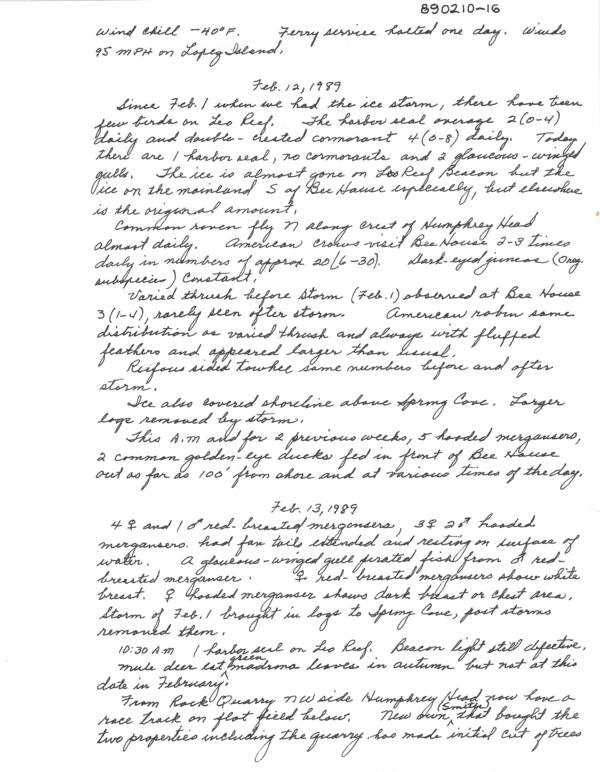 890210-16
Wind chill -40°F. Ferry service halted one day. Winds
95 MPH on Lopez Island.
Feb. 12, 1989
Since Feb. 1 when we had the ice storm, there have been
few birds on Leo Reef. The harbor seal average 2(0-4)
daily and double-crested cormorant 4(0-8) daily. Today
there are 1 harbor seal, no cormorants and 2 glaucous-winged
gulls. The ice is almost gone on Leo Reef Beacon but the
ice on the mainland S of Bee House especially, but elsewhere
is the original amount.
Common raven fly N along crest of Humphrey Head
almost daily. American crows visit Bee House 2-3 times
daily in numbers of approx 20(6-30). Dark-eyed juncos (Oreg.
subspecies) Constant.
Varied thrush before storm (Feb. 1) observed at Bee House
3(1-4), rarely seen after storm. American robin same
distribution as varied thrush and always with fluffed
feathers and appeared larger than usual.
Rufous sided towhee same numbers before and after
storm.
Ice also covered shoreline above Spring Cove. Larger
logs removed by storm.
This A.M and for 2 previous weeks, 5 hooded mergansers,
2 common golden-eye ducks fed in front of Bee House
out as far as 100' from shore and at various times of the day.
Feb. 13, 1989
4 ♀ and 1 ♂ red-breasted mergansers, 3♀ 2♂ hooded
mergansers. had fan tails extended and resting on surface of
water. A glaucous-winged gull pirated fish from ♂ red-
breasted merganser. ♀ red-breasted mergansers show white
breast. ♀ hooded merganser shows dark breast or chest area.
Storm of Feb. 1 brought in logs to Spring Cove, past storms
removed them.
10:30 A.M 1 harbor seal on Leo Reef. Beacon light still defective.
mule deer eat green madrona leaves in autumn but not at this
date in February.
From Rock Quarry NW side Humphrey Head now have a
race track on flat field below. New own (Smith) that bought the
two properties including the quarry has made initial cut of trees